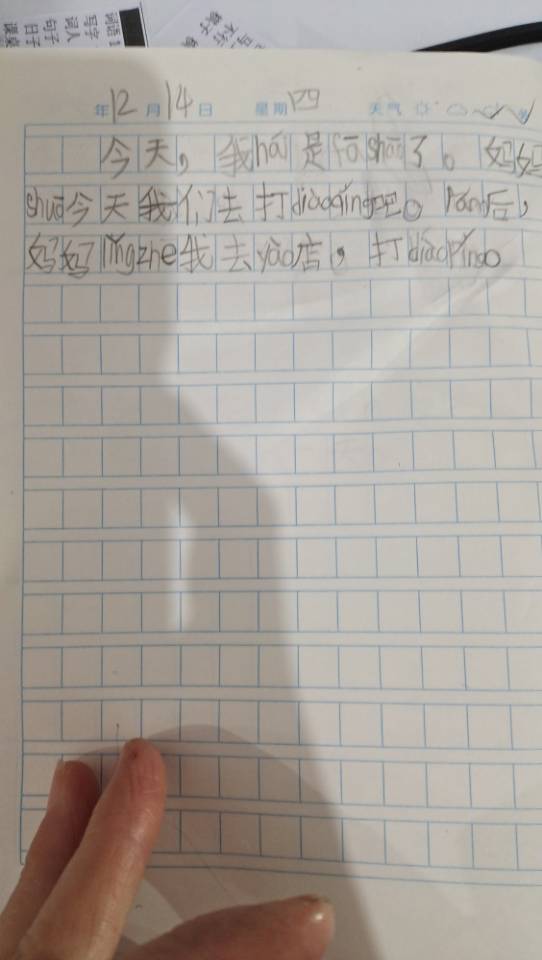 词语1
写字
词人
句子
日子
年12月14日 星期四 天气
今天，我hái是fāshāo了。妈妈
shuō今天我们去打diàopíng吧。rán后，
妈妈lǐngzhe我去yào店，打diàopíng。